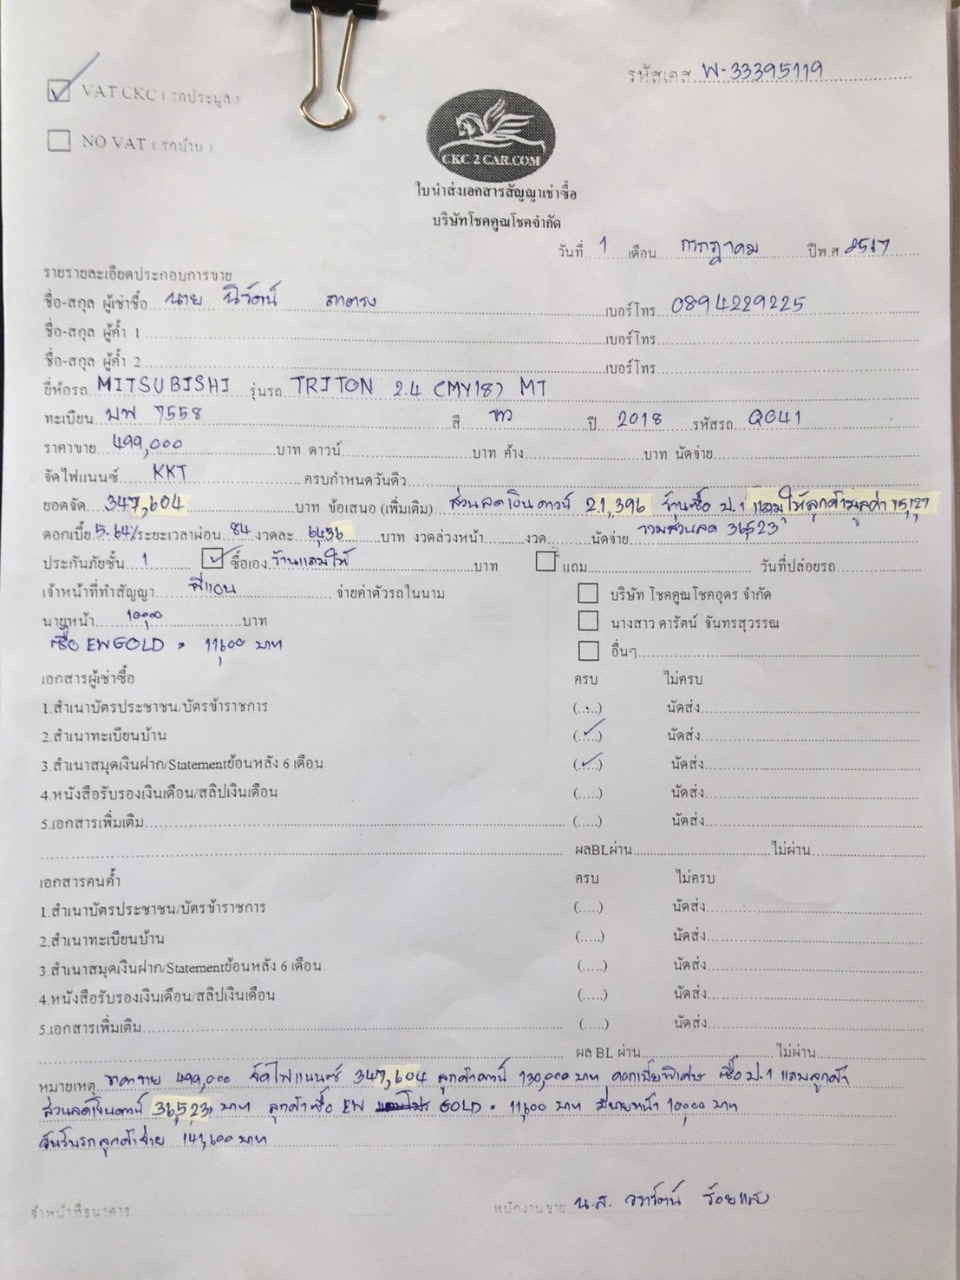 รหัสเคส W-33395119
VAT CKC (รถประมูล)
NO VAT (รถบ้าน)
CKC 2 CAR.COM
ใบนำส่งเอกสารสัญญาเช่าซื้อ
บริษัทโชคคูณโชคจำกัด
วันที่ 1 เดือน กรกฎาคม ปีพ.ศ.
รายรายละเอียดประกอบการขาย
ชื่อ-สกุล ผู้เช่าซื้อ นาย นิรัตน์ เบอร์โทร 0894229225
ชื่อ-สกุล ผู้ค้ำ 1 เบอร์โทร
ชื่อ-สกุล ผู้ค้ำ 2 เบอร์โทร
ยี่ห้อรถ MITSUBISHI รุ่นรถ TRITON 2.4 (MY18) MT
ทะเบียน 7558 สี ขาว ปี 2018 รหัสรถ QG41
ราคาขาย 499,000 บาท ดาวน์ บาท ค้าง บาท นัดจ่าย
จัดไฟแนนซ์ KKT ครบกำหนดวันดิว
ยอดจัด 347,604 บาท ข้อเสนอ (เพิ่มเติม) ส่วนลดเงินดาวน์ 21,396 ร้านซื้อ ป.1 แถมให้ลูกค้ามูลค่า 15,127
ดอกเบี้ย 5.64% ระยะเวลาผ่อน 84 งวดละ 6,436 บาท งวดล่วงหน้า งวด นัดจ่าย รวมส่วนลด 36,523
ประกันภัยชั้น 1 ซื้อเอง ร้านแถมให้ บาท แถม วันที่ปล่อยรถ
เจ้าหน้าที่ทำสัญญา พี่แอน จ่ายค่าตัวรถในนาม บริษัท โชคคูณโชคอุดร จำกัด
นายหน้า 10,000 บาท นางสาว ดารัตน์ จันทรสุวรรณ
ซื้อ EW GOLD = 11,600 บาท อื่นๆ
เอกสารผู้เช่าซื้อ ครบ ไม่ครบ
1.สำเนาบัตรประชาชน/บัตรข้าราชการ (.....) นัดส่ง
2.สำเนาทะเบียนบ้าน (.....) นัดส่ง
3.สำเนาสมุดเงินฝาก/Statementย้อนหลัง 6 เดือน (.....) นัดส่ง
4.หนังสือรับรองเงินเดือน/สลิปเงินเดือน (.....) นัดส่ง
5.เอกสารเพิ่มเติม (.....) นัดส่ง
ผลBLผ่าน ไม่ผ่าน
เอกสารคนค้ำ ครบ ไม่ครบ
1.สำเนาบัตรประชาชน/บัตรข้าราชการ (.....) นัดส่ง
2.สำเนาทะเบียนบ้าน (.....) นัดส่ง
3.สำเนาสมุดเงินฝาก/Statementย้อนหลัง 6 เดือน (.....) นัดส่ง
4.หนังสือรับรองเงินเดือน/สลิปเงินเดือน (.....) นัดส่ง
5.เอกสารเพิ่มเติม (.....) นัดส่ง
ผล BL ผ่าน ไม่ผ่าน
หมายเหตุ ราคาขาย 499,000 จัดไฟแนนซ์ 347,604 ลูกค้าดาวน์ 130,000 บาท ดอกเบี้ยพิเศษ ซื้อ ป.1 แถมลูกค้า
ส่วนลดเงินดาวน์ 36,523 บาท ลูกค้าซื้อ EW GOLD = 11,600 บาท มีนายหน้า 10,000 บาท
วันรับรถลูกค้าจ่าย 141,600 บาท
เจ้าหน้าที่ธนาคาร พนักงานขาย น.ส. วรารัตน์